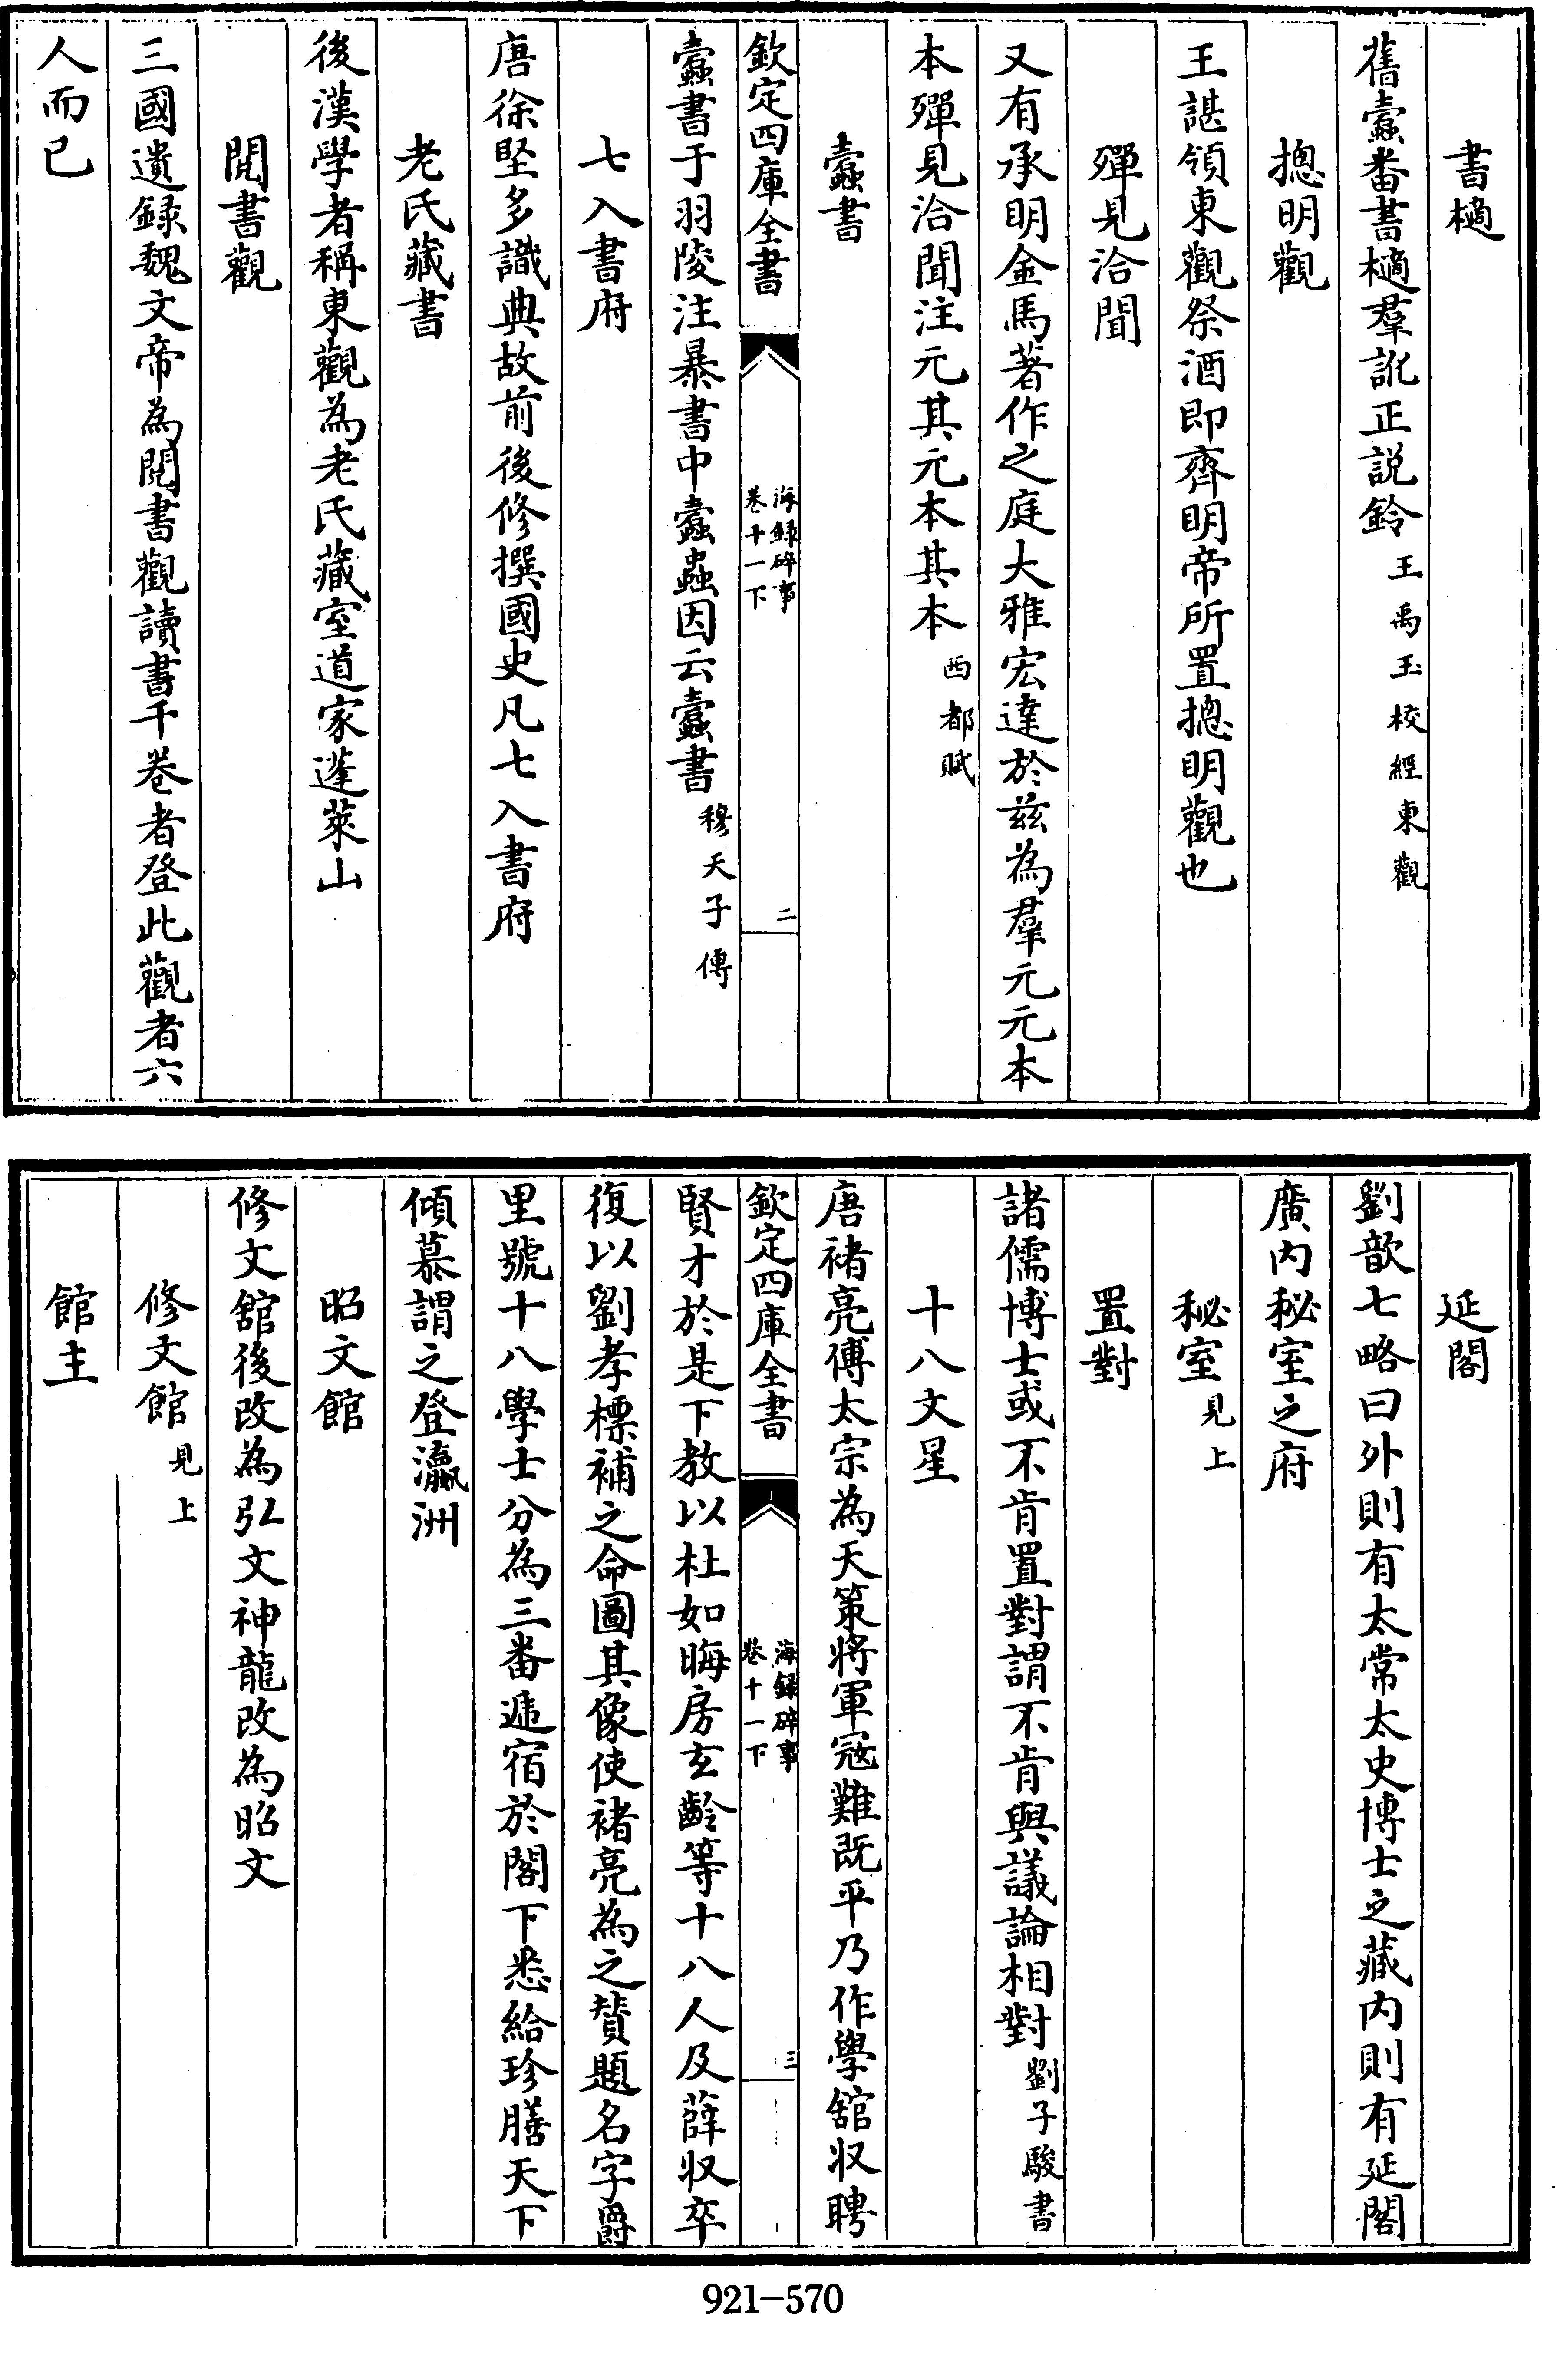 書樀
舊蠧畨書樀羣訛正説鈴王禹玉校經東觀
摠明觀
王諶領東觀祭酒即齊明帝所置摠明觀也
殫見洽聞
又有承明金馬著作之庭大雅宏達於兹為羣元元本
本殫見洽聞注元其元本其本西都賦
蠧書
欽定四庫全書
海録碎事
卷十一下
二
蠧書于羽陵注暴書中蠧蟲因云蠧書穆天子傳
七入書府
唐徐堅多識典故前後修撰國史凡七入書府
老氏藏書
後漢學者稱東觀為老氏藏室道家蓬萊山
閲書觀
三國遺録魏文帝為閲書觀讀書千卷者登此觀者六
人而已
延閣
劉歆七略曰外則有太常太史博士之藏内則有延閣
廣内秘室之府
秘室見上
置對
諸儒博士或不肯置對謂不肯與議論相對劉子駿書
十八文星
唐褚亮傅太宗為天策將軍冦難既平乃作學舘収聘
欽定四庫全書
海録碎事
卷十一下
三
賢才於是下教以杜如晦房玄齡等十八人及薛収卒
復以劉孝標補之命圖其像使褚亮為之賛題名字爵
里號十八學士分為三畨遞宿於閣下悉給珍膳天下
傾慕謂之登瀛洲
昭文館
修文舘後改為弘文神龍改為昭文
修文館見上
館主
921-570